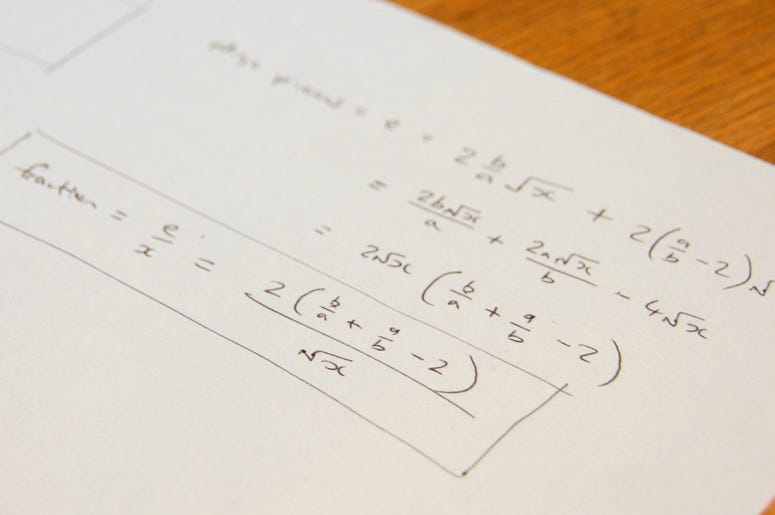 edge pieces = e = 2 b/a √x + 2(a/b - 2)√
= 2b√x/a + 2a√x/b - 4√x
= 2√x (b/a + a/b - 2)
fraction = e/x = 2(b/a + a/b - 2)/√x